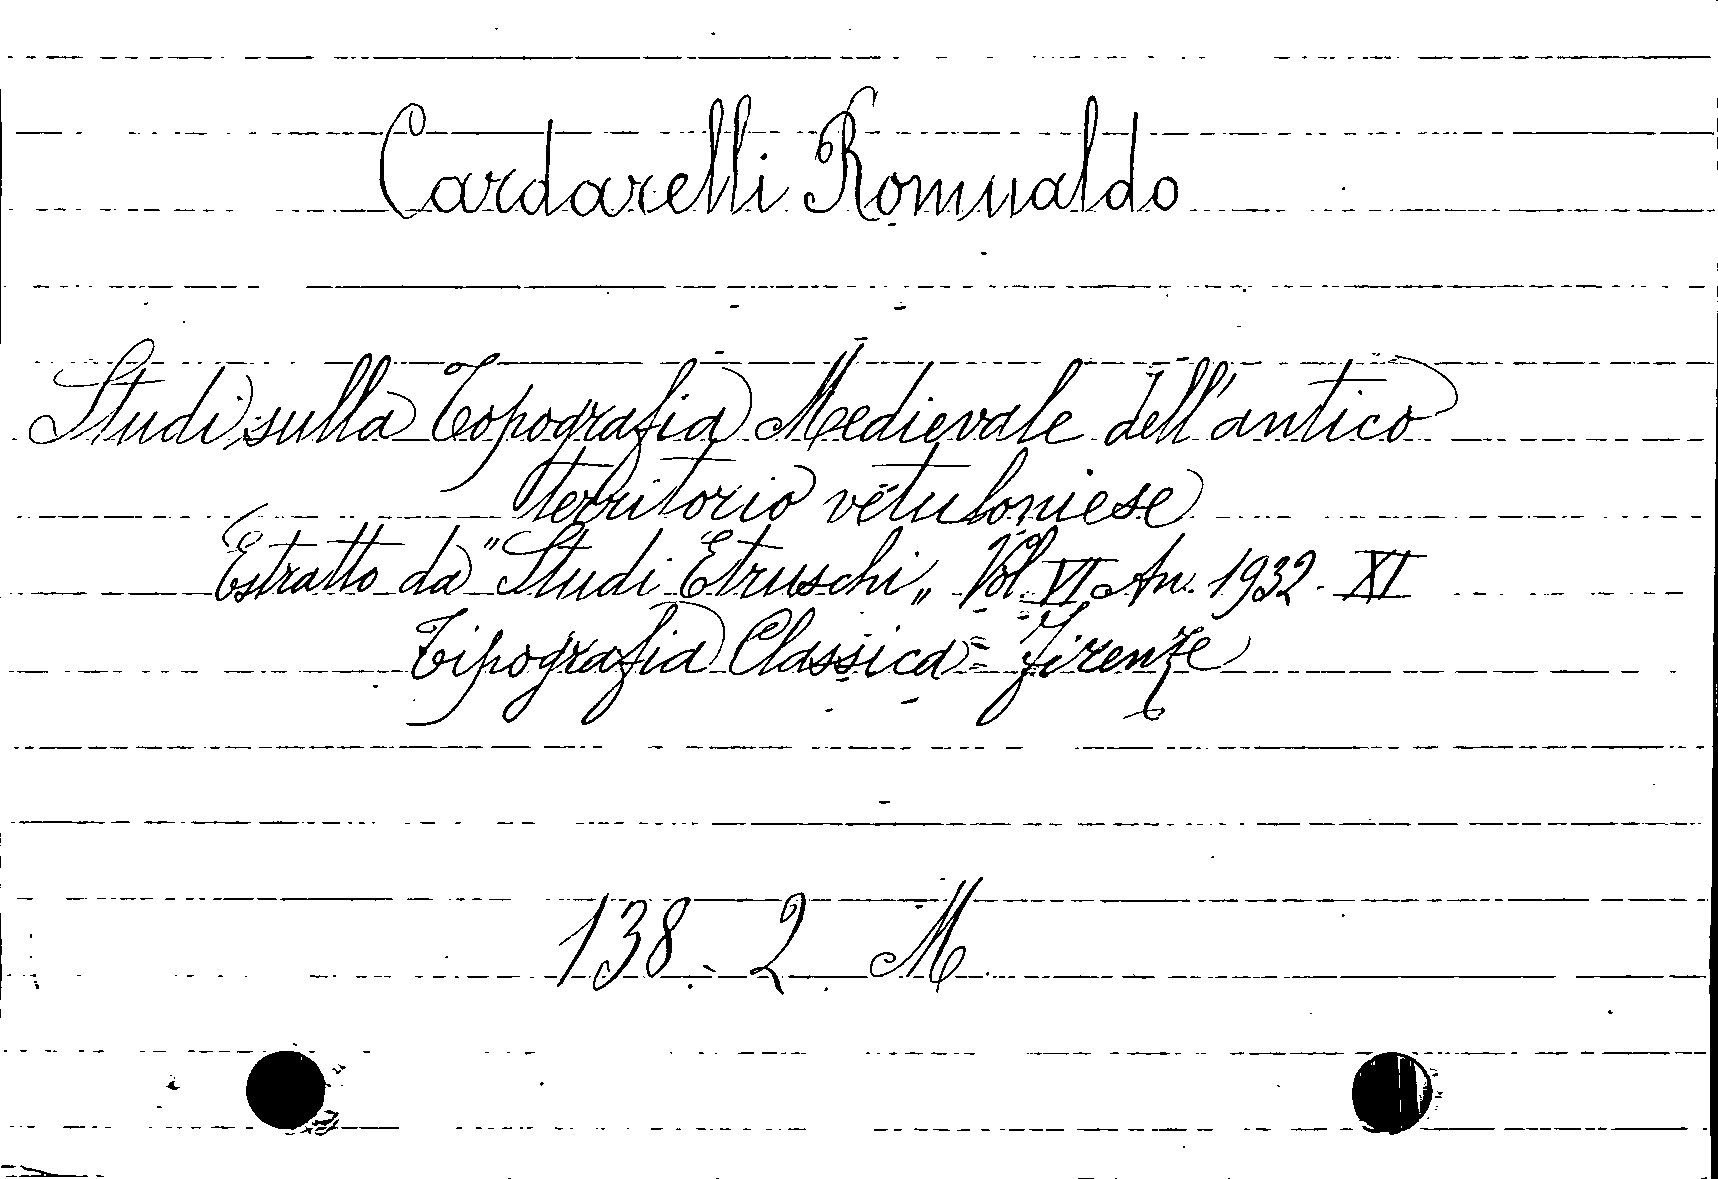 Cardarelli Romualdo
Studi sulla Topografia Medievale dell'antico
territorio vetuloniese
Estratto da "Studi Etruschi„ Vol. VI An. 1932 - XI
Tipografia Classica = Firenze
138 - 2 M